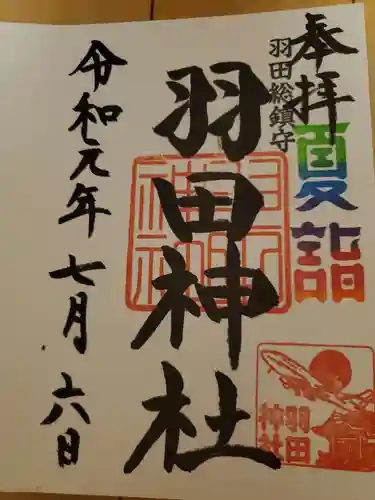 奉拝
羽田総鎮守
夏詣
羽田神社
羽田神社
羽田神社
令和元年七月十六日